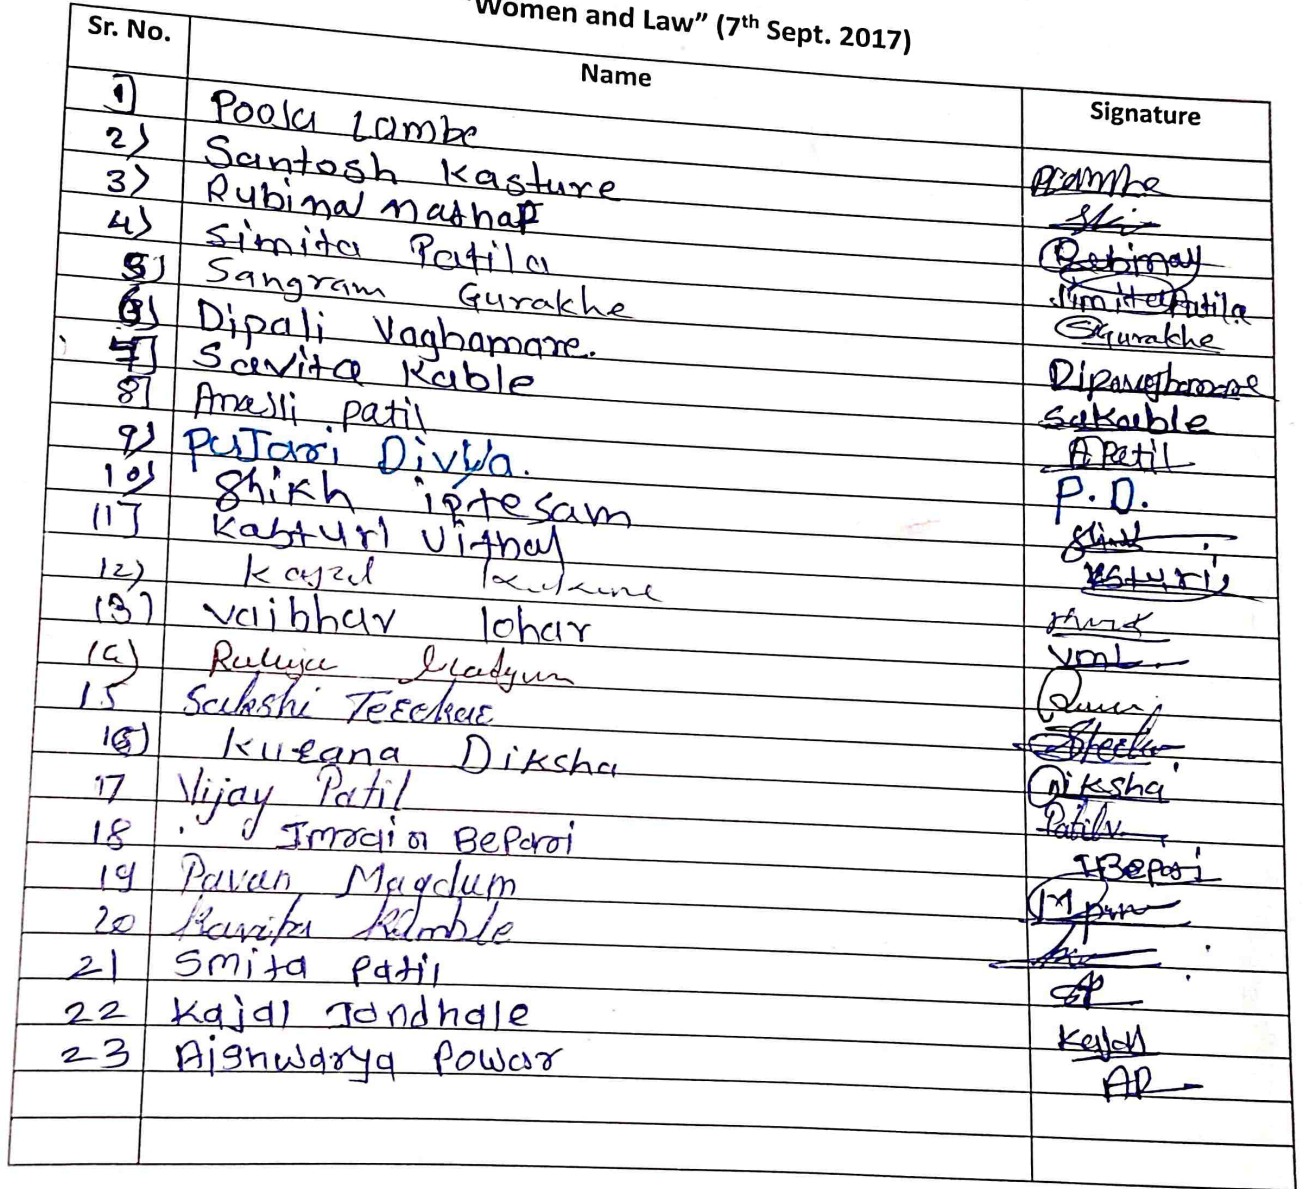 Women and Law” (7th Sept. 2017)
Sr. No. Name Signature
1] Pooja Lambe
2) Santosh Kasture
3) Rubina Mathap
4) Simita Patila Simita Patila
5) Sangram Gurakhe SGurakhe
6) Dipali Vaghamare.
7] Savita Kable SaKable
8] Anajli patil A Patil
9) PuJari Divya. P.D.
10) Shikh iptesam
11] Kasturi Vithal Kasturi
12) Kajal
13) vaibhav lohar VmL
14)
15 Sakshi
16) Kurana Diksha Diksha
17 Vijay Patil PatilV
18 Imrain Bepari IBepari
19 Pavan Magdum
20 Kavita Kamble
21 Smita Patil SP
22 Kajal Jandhale Kajal
23 Aishwarya Powar AP